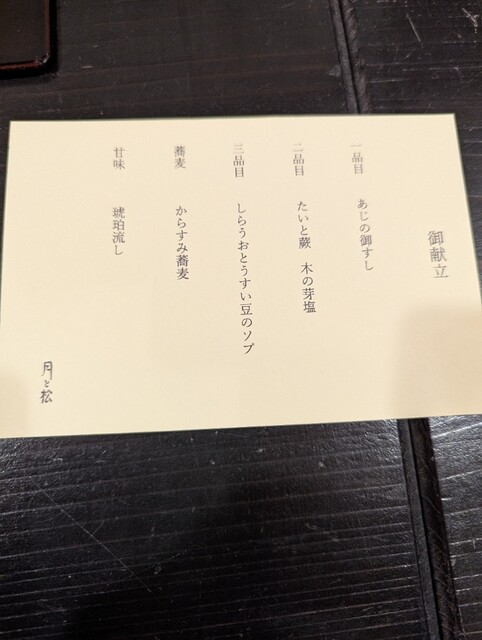 御献立
一品目　あじの御すし
二品目　たいと蕨　木の芽塩
三品目　しらうおとうすい豆のソプ
蕎麦　からすみ蕎麦
甘味　琥珀流し
月と松